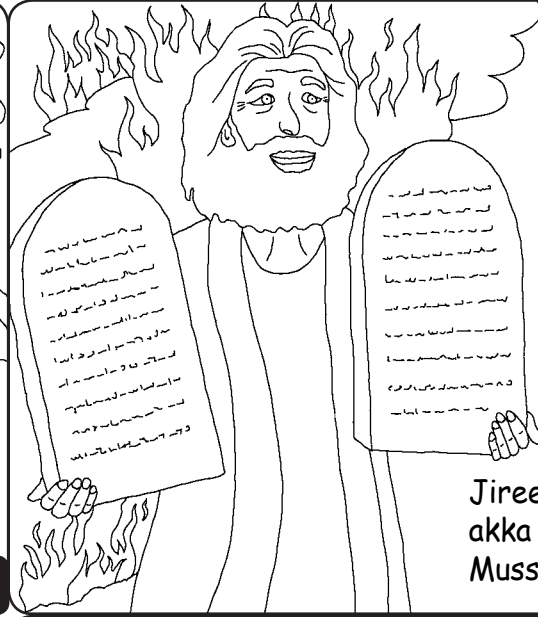 Jiree
akka
Muss